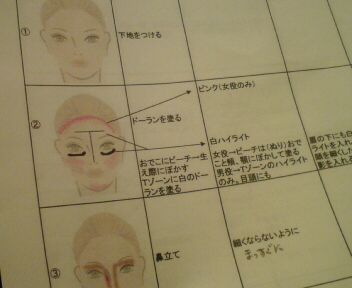 ①
下地をつける
ピンク(女役のみ)
②
ドーランを塗る
おでこにピーチ→生
え際にぼかす
Tゾーンに白のドー
ランを塗る
白ハイライト
女役→ピーチは(ぬり)おで
こと頬、顎にぼかして塗る
男役→Tゾーンのハイライト
のみ。目頭にも
眉の下にも白
ライトを入れ
顔を細くした
影を入れる
③
鼻立て
細くならないように
まっすぐに